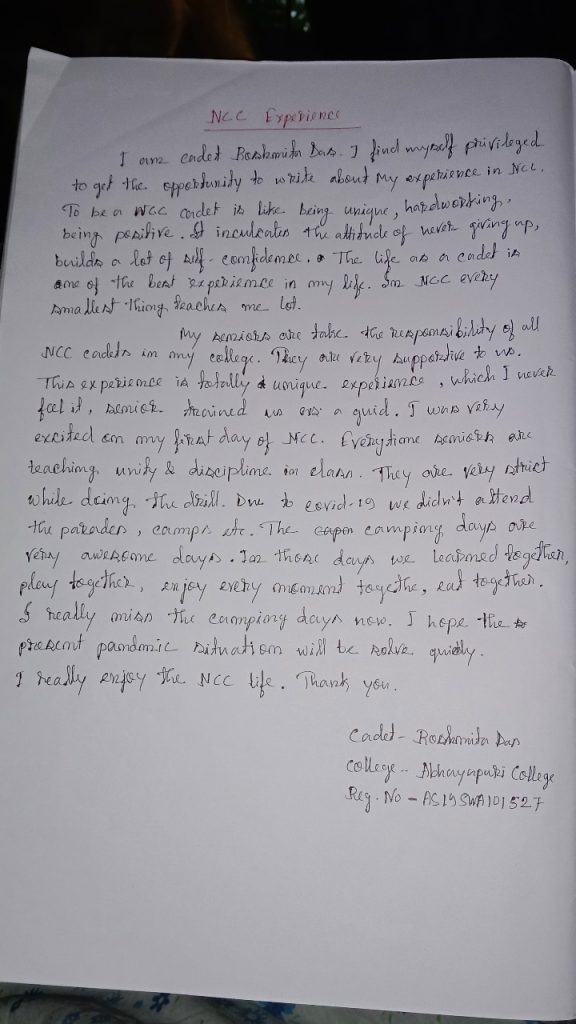 NCC Experience
I am cadet Roshmita Das. I find myself privileged
to get the oppobtunity to write about my experience in NCC.
To be a NCC cadet is like being unique, hardworking,
being positive. It inculcates the attitude of never giving up,
builds a lot of self-confidence. The life as a cadet is
one of the best experience in my life. In NCC every
smallest thing teaches me lot.
My seniors are take the responsibility of all
NCC cadets in my college. They are very supportive to us.
This experience is totally a unique experience, which I never
feel it, senior trained us as a guid. I was very
excited on my first day of NCC. Everytime seniors are
teaching unity & discipline in class. They are very strict
while doing the drill. Due to covid-19 we didn't attend
the parades, camps etc. The camping days are
very awesome days. In those days we learned together,
play together, enjoy every moment togethe, eat together.
I really miss the camping days now. I hope the
present pandmic situation will be solve quickly.
I really enjoy the NCC life. Thank you.
Cadet - Roshmita Das
College - Abhayapuri College
Reg. No - AS19SWA101527